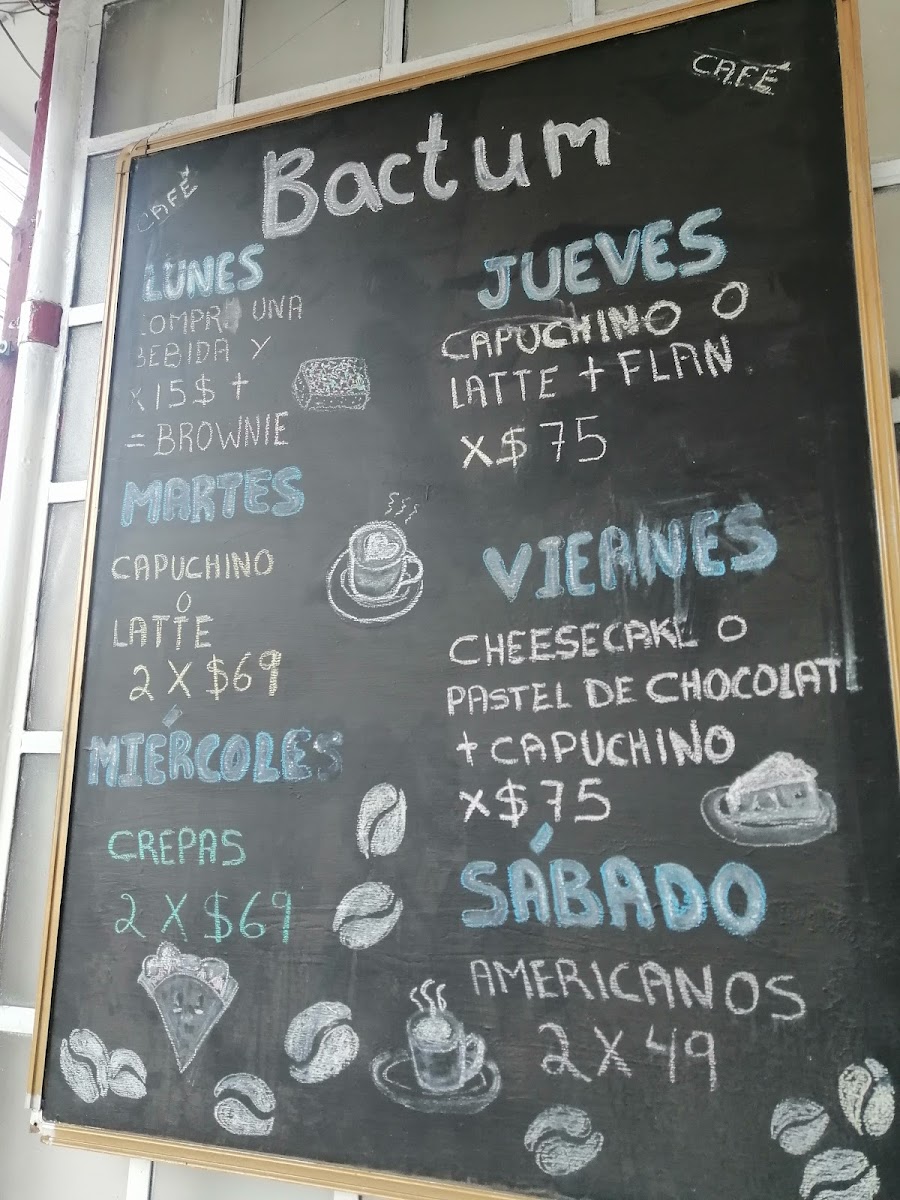 CAFÉ
CAFÉ
Bactum
LUNES
COMPRA UNA
BEBIDA Y
X 15$ +
= BROWNIE
MARTES
CAPUCHINO
Ó
LATTE
2 X $69
MIÉRCOLES
CREPAS
2 X $69
JUEVES
CAPUCHINO O
LATTE + FLAN
X $ 75
VIERNES
CHEESECAKE O
PASTEL DE CHOCOLATE
+ CAPUCHINO
X $ 75
SÁBADO
AMERICANOS
2 X 49